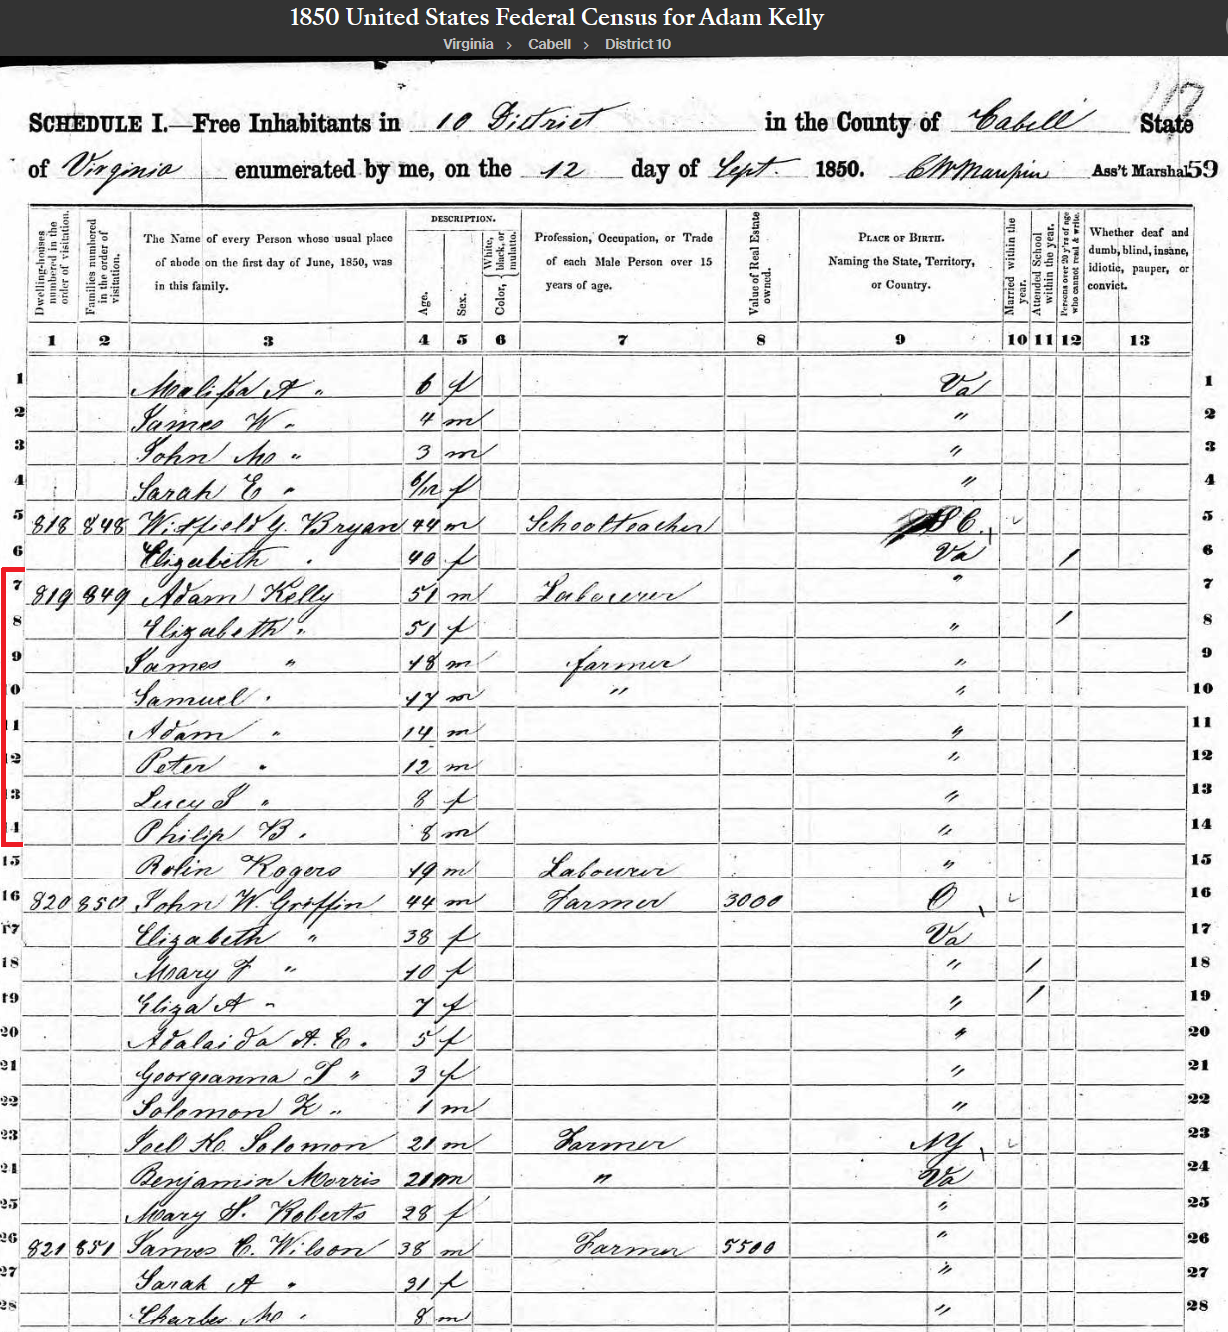 1850 United States Federal Census for Adam Kelly
Virginia > Cabell > District 10
117
SCHEDULE I.—Free Inhabitants in 10 District in the County of Cabell State
of Virginia enumerated by me, on the 12 day of Sept. 1850. C W Maupin Ass't Marshal 59
Dwelling-houses numbered in the order of visitation.
Families numbered in the order of visitation.
The Name of every Person whose usual place of abode on the first day of June, 1850, was in this family.
DESCRIPTION.
Age.
Sex.
Color, { White, black, or mulatto.
Profession, Occupation, or Trade of each Male Person over 15 years of age.
Value of Real Estate owned.
PLACE OF BIRTH. Naming the State, Territory, or Country.
Married within the year.
Attended School within the year.
Persons over 20 y'rs of age who cannot read & write.
Whether deaf and dumb, blind, insane, idiotic, pauper, or convict.
1 2 3 4 5 6 7 8 9 10 11 12 13
1 Malissa A " 6 f Va 1
2 James W " 4 m " 2
3 John M " 3 m " 3
4 Sarah E " 6/12 f " 4
5 818 848 G. Bryan 44 m Schoolteacher 5
6 Elizabeth " 40 f Va / 6
7 819 849 Adam Kelly 51 m Labourer " 7
8 Elizabeth " 51 f " / 8
9 James " 18 m farmer " 9
10 Samuel " 17 m " " 10
11 Adam " 14 m " 11
12 Peter " 12 m " 12
13 Lucy J " 8 f " 13
14 Philip B. " 8 m " 14
15 Rolin Rogers 19 m Labourer " 15
16 820 850 John W. Griffin 44 m Farmer 3000 O 16
17 Elizabeth " 38 f Va 17
18 Mary F " 10 f " / 18
19 Eliza A " 7 f " / 19
20 Adalaida A. C. " 5 f " 20
21 Georgeanna T " 3 f " 21
22 Solomon K " 1 m " 22
23 Joel K. Solomon 21 m Farmer NY 23
24 Benjamin Morris 21 m " Va 24
25 Mary S. Roberts 28 f " 25
26 821 851 James C. Wilson 38 m Farmer 5500 " 26
27 Sarah A " 31 f " 27
28 Charles M. " 8 m " 28